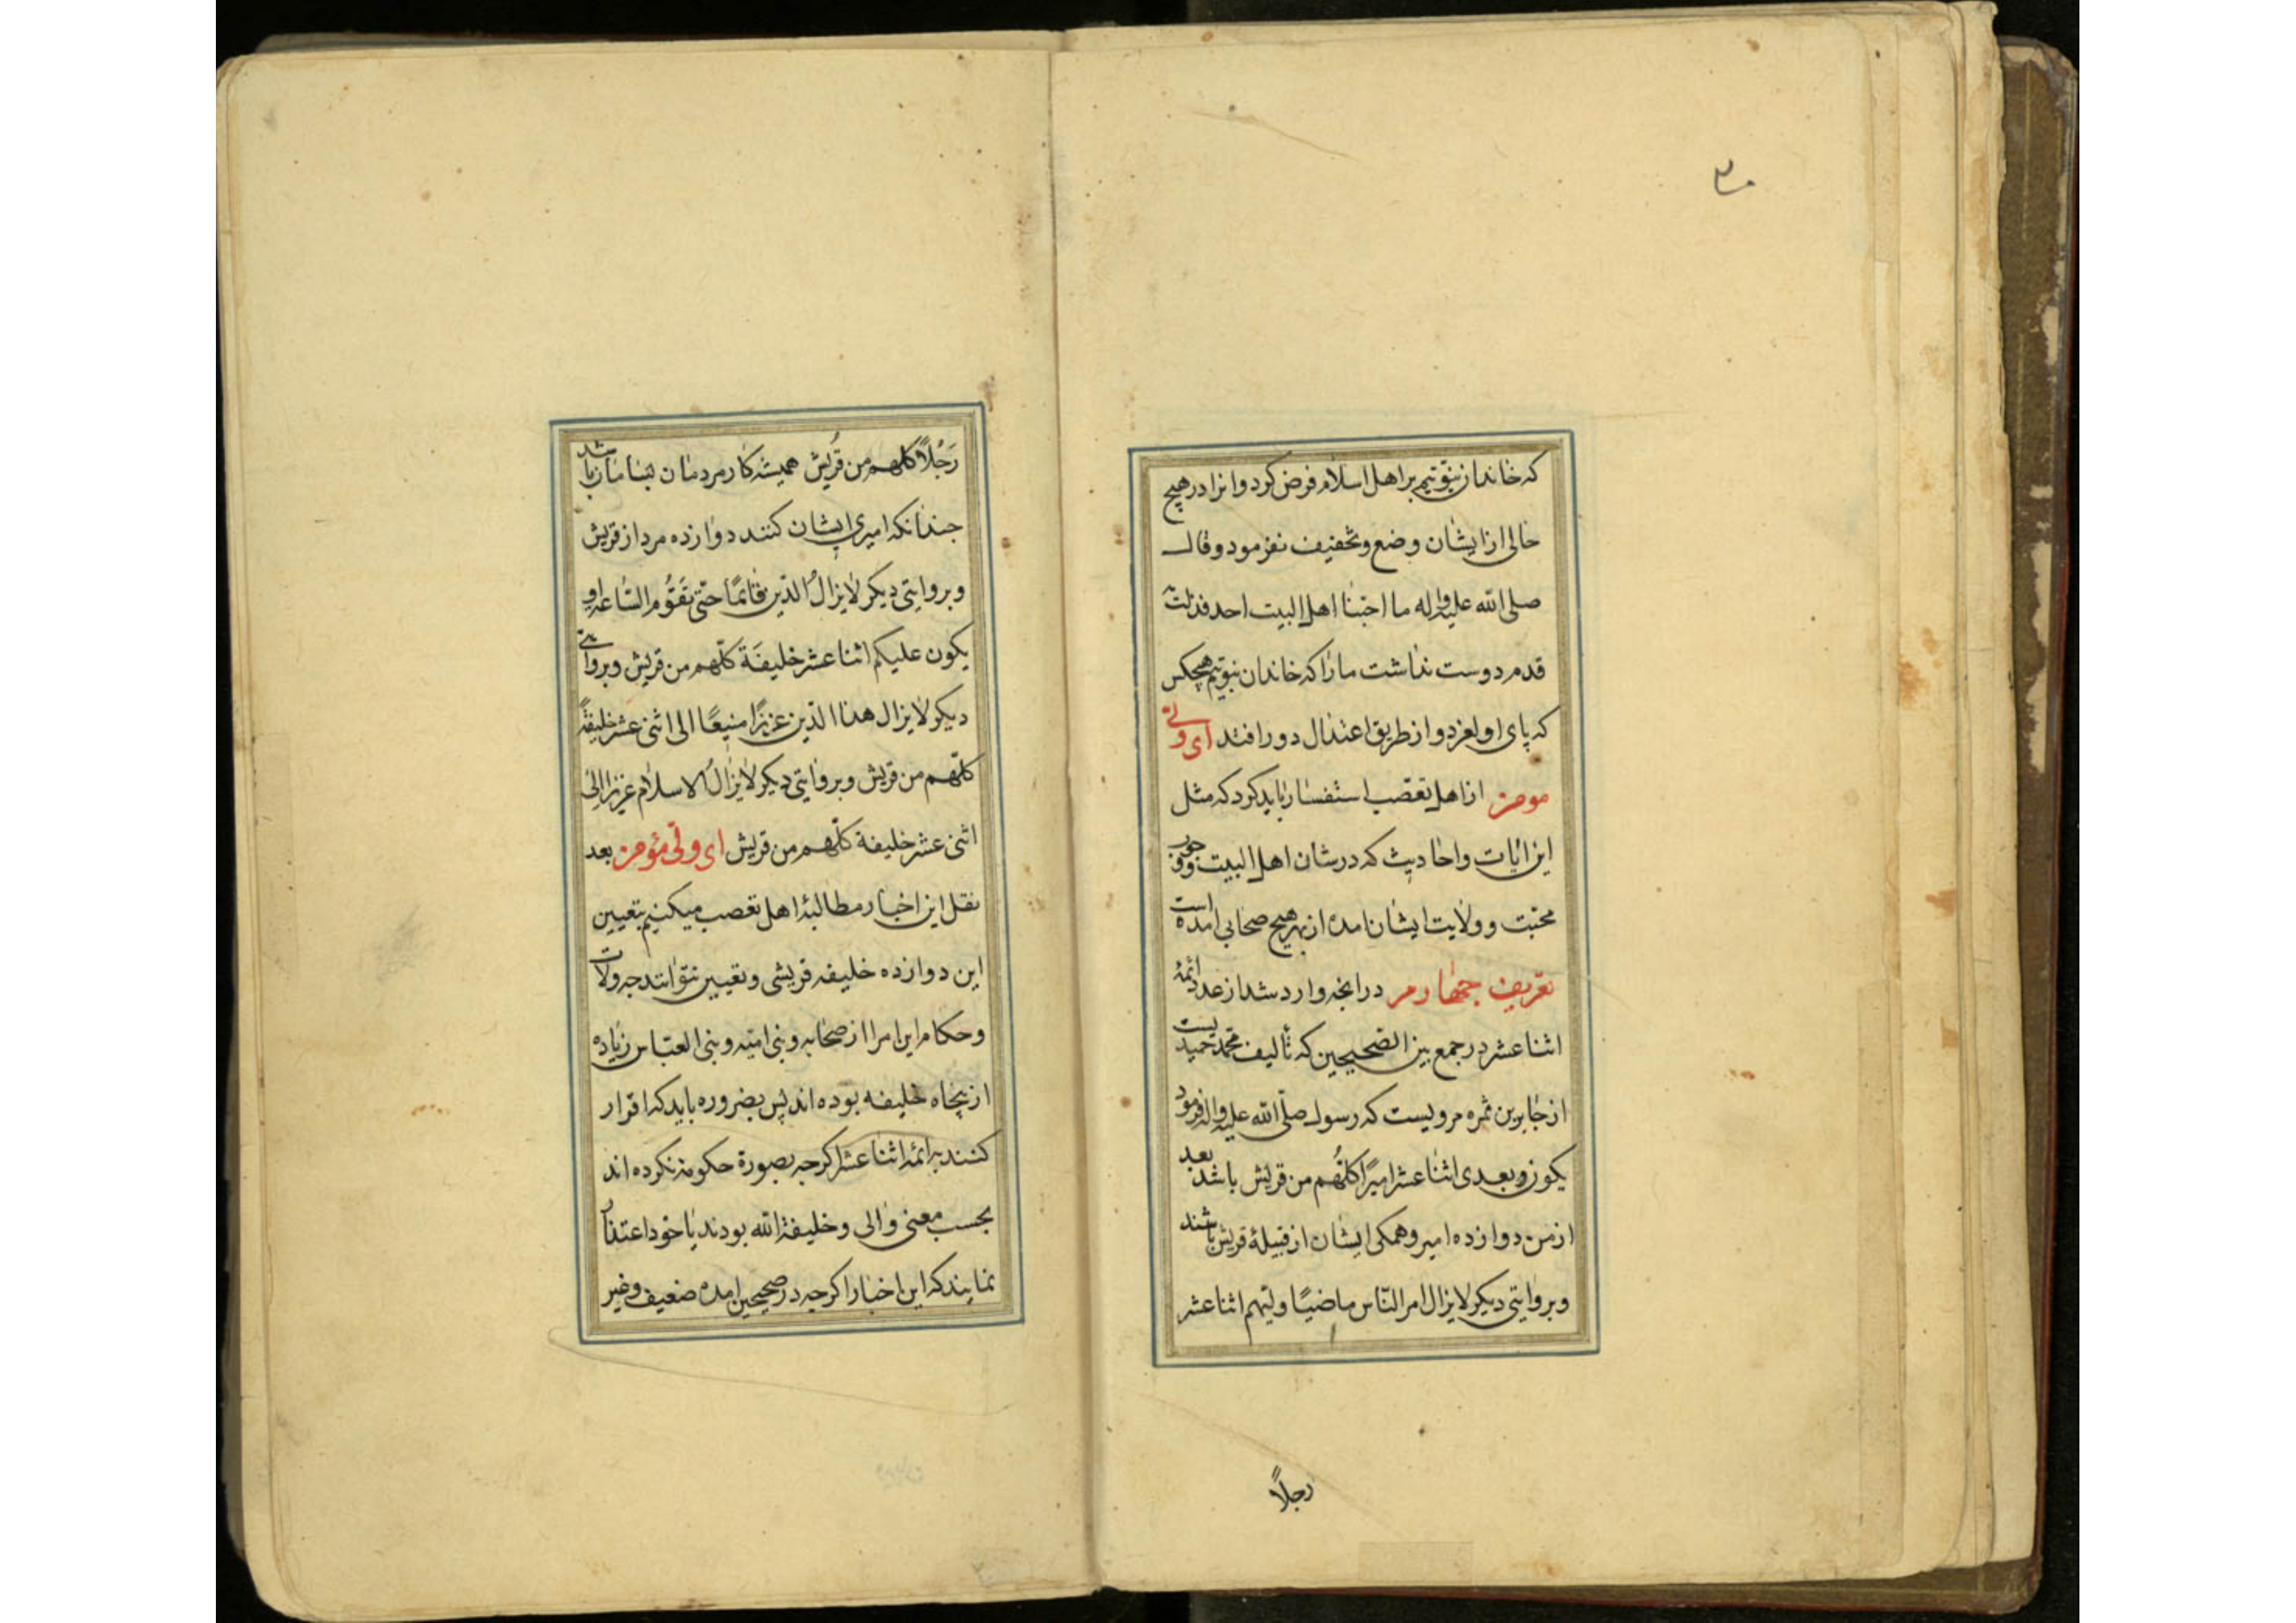 که خاندان نبوتیم بر اهل اسلام فرض کرد و انرا در هیچ
حالی از ایشان وضع و تخفیف نفرمود و قال
صلی الله علیه واله ما احبنا اهل البیت احد فزلت به
قدم دوست نداشت ما را که خاندان نبوتیم هیچکس
که پای او لغزد و از طریق اعتدال دور افتد ای ولی
مومن از اهل تعصب استفسار باید کرد که مثل
این ایات و احادیث که در شان اهل البیت و وجوب
محبت و ولایت ایشان امده از بهر هیچ صحابی امده است
تعریف چهارم در انچه وارد شد از عدد ائمهٔ
اثنا عشر در جمع بین الصحیحین که تألیف محمد حمیدیست
از جابر بن ثمره مرویست که رسول صلّی الله علیه واله فرمود
یکون بعدی اثنا عشر امیرًا کلّهُم من قریش باشد بعد
از من دوازده امیر و همکی ایشان از قبیلهٔ قریش باشند
و بروایتی دیکر لایزال امر النّاس ماضیًا ولیّهم اثنا عشر
رجلًا
رَجُلاً کلهم من قُریش همیشه کار مردمان بسامان باشد
جندانکه امیری ایشان کنند دوازده مرد از قریش
و بروایتی دیکر لایزالُ الدّین قائمًا حتّی تقوُم السّاعه او
یکون علیکم اثنا عشر خلیفَة کلّهم من قریش و بروایتی
دیکر لایزال هذا الدّین عزیزًا منیعًا الی اثنی عشر خلیفةً
کلّهم من قریش و بروایتی دیکر لایزالُ الاسلام عزیزا إلی
اثنی عشر خلیفة کلّهم من قریش ای ولی مؤمن بعد
نقل این اخبار مطالبهٔ اهل تعصب میکنیم بتعیین
این دوازده خلیفه قریشی و تعیین نتوانند جه ولات
و حکام این امر از صحابه و بنی امیّه و بنی العبّاس زیاده
از پنجاه خلیفه بوده اند پس بضروره باید که اقرار
کنند به ائمهٔ اثنا عشر اکرجه بصورة حکومة نکرده اند
بحسب معنی والی و خلیفة الله بودند یا خود اعتذار
نمایند که این اخبار اکرجه در صحیحین امده ضعیف و غیر